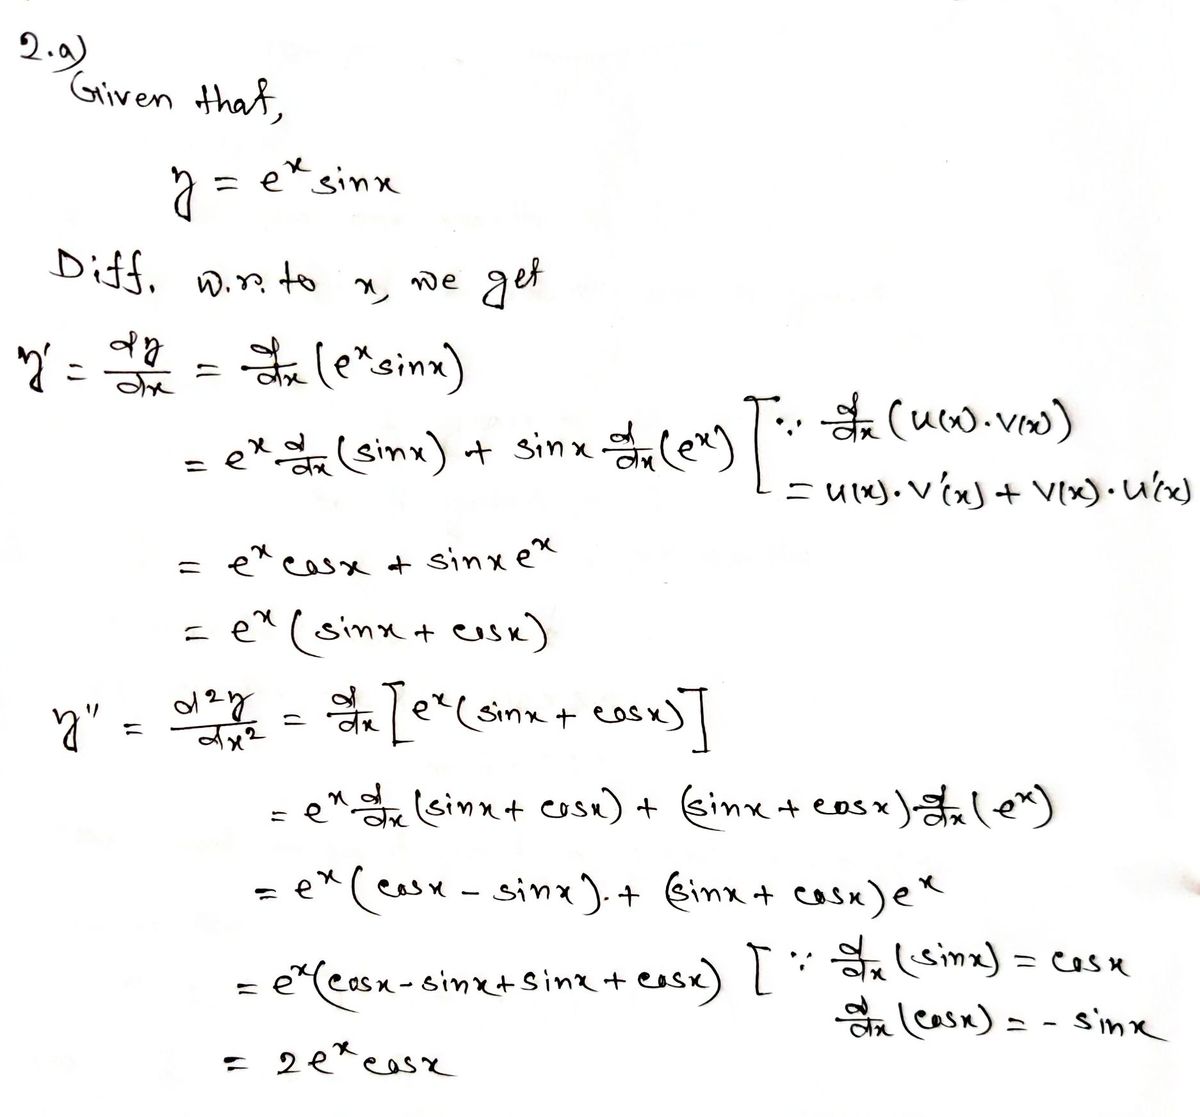 2.a)
Given that,
y = e^x sinx
Diff. w.r. to x, we get
y' = dy/dx = d/dx (e^x sinx)
= e^x d/dx (sinx) + sinx d/dx (e^x) [∵ d/dx (u(x).v(x))
= u(x).v'(x) + v(x).u'(x)
= e^x cosx + sinx e^x
= e^x (sinx + cosx)
y'' = d²y/dx² = d/dx [e^x (sinx + cosx)]
= e^x d/dx (sinx + cosx) + (sinx + cosx) d/dx (e^x)
= e^x (cosx - sinx).+ (sinx + cosx) e^x
= e^x (cosx - sinx + sinx + cosx) [∵ d/dx (sinx) = cosx
d/dx (cosx) = - sinx
= 2e^x cosx